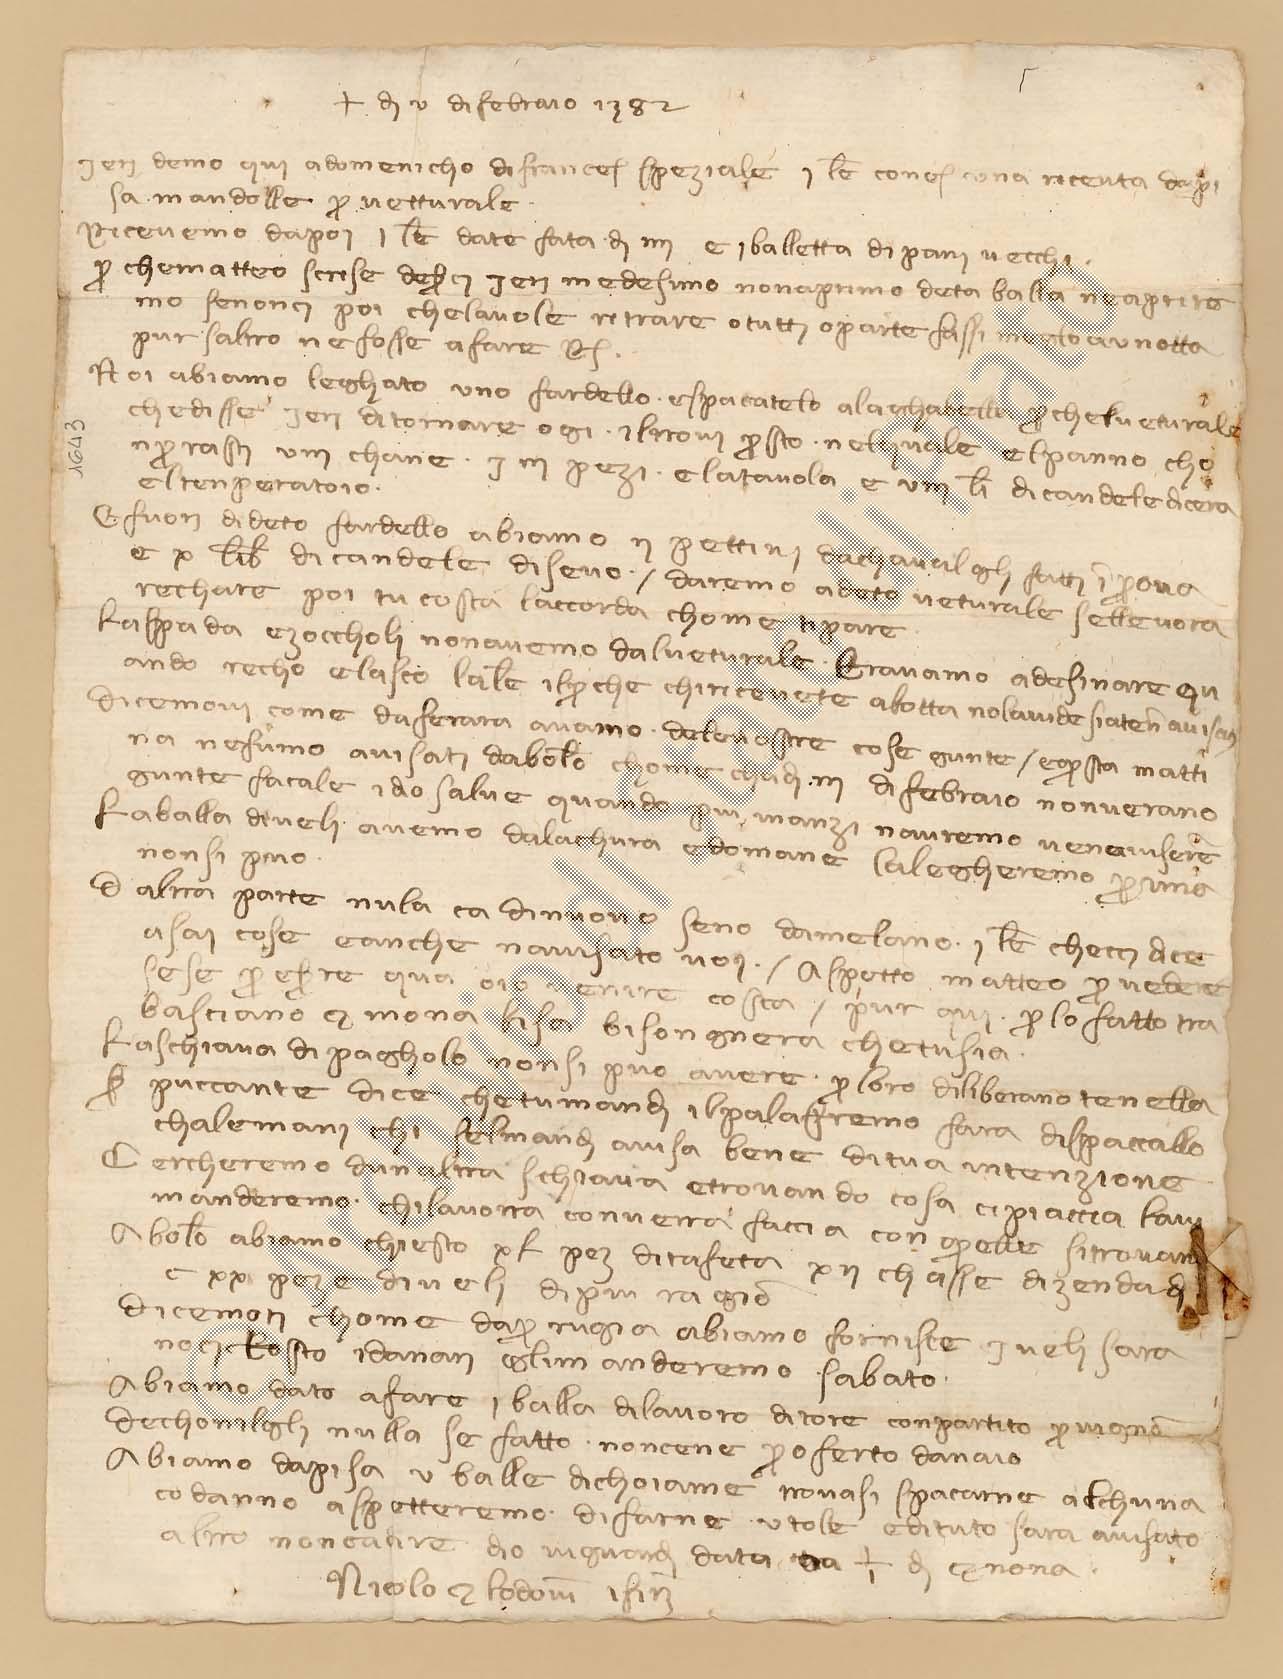 + dì v di febraio 1382
Ieri demo qui a domenicho di francescho speziale i lettera con una ricevuta da pi
sa mandolle per vetturale
Ricevemo dapoi i lettera date fata dì iii e i balletta di pani vecchi
per che matteo scrise ieri medesimo non aprimo deta balla ne aprire
mo se non ci poi che la vole ritrare o tutti o parte
pur s altro ne fosse a fare
Noi abiamo leghato uno fardello e spacatelo a la ghabella per che l veturale
che disse ieri di tornare ogi i trovi presto nel quale el panno cho
viii chane i iii pezi e la tavola e viii lb di candele di cera
el tenperatoio
E fuori di deto fardello abiamo ii pettini da chavagli fatti i prova
e x lib di candele di sevo / daremo a deto veturale se lle vora
rechare poi tu costa l accorda chome ti pare
La spada e zoccholi non avemo dal veturale Eravamo a desinare qu
ando recho e lascio la lettera per che chi ricevete a botta no la vide siaten avisati
Dicemovi come da ferara avamo de le vostre cose gunte / e questa matti
na ne fumo avisati da bolo chome dì iii di febraio non v erano
gunte facale idio salve quando piu inanzi n avremo ve n aviseremo
La balla di veli avemo da la chura e domane la legheremo prima
non si puo
D altra parte nula ca di nuovo seno da melano i lettera che cci dice
asai cose e anche n avisato voi / Aspetto matteo per vedere
se se per essere qua o io venire costa / pur qui per lo fatto tra
basciano e mona lisa bisongnera che tu sia
La schiava di pagholo non si puo avere per loro diliberano tenella
puccante dice che tu mandi il palafremo fara dispaccallo
chalemani chi se l mandi avisa bene di tua intenzione
Cercheremo d un altra schiava e trovando cosa ci piaccia la vi
manderemo chi la vorra converra faccia con quelle si trovano
A bolo abiamo chiesto xl pez di tafeta xii chasse di zendadi
c xx peze di veli di piu ragio
Dicemoti chome da perugia abiamo fornisce i veli sara
noci tosto i danari gli manderemo sabato
Abiamo dato a fare i balla di lavoro di tore con partito per vignone
De chonilgli nulla s e fatto non c ene proferto danaio
Abiamo da pisa v balle di choiame trovasi spacarne alchuna
co danno aspetteremo di farne utole e di tuto sara avisato
altro non ca dire dio vi guardi data dì e nona
Nicolo e lodovicho i firenze
1643
© Archivio di Stato di Prato